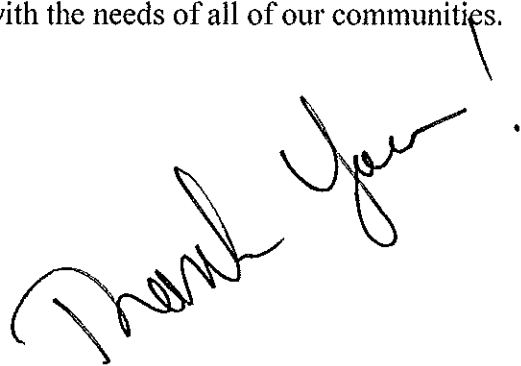 with the needs of all of our communities.
Thank You!